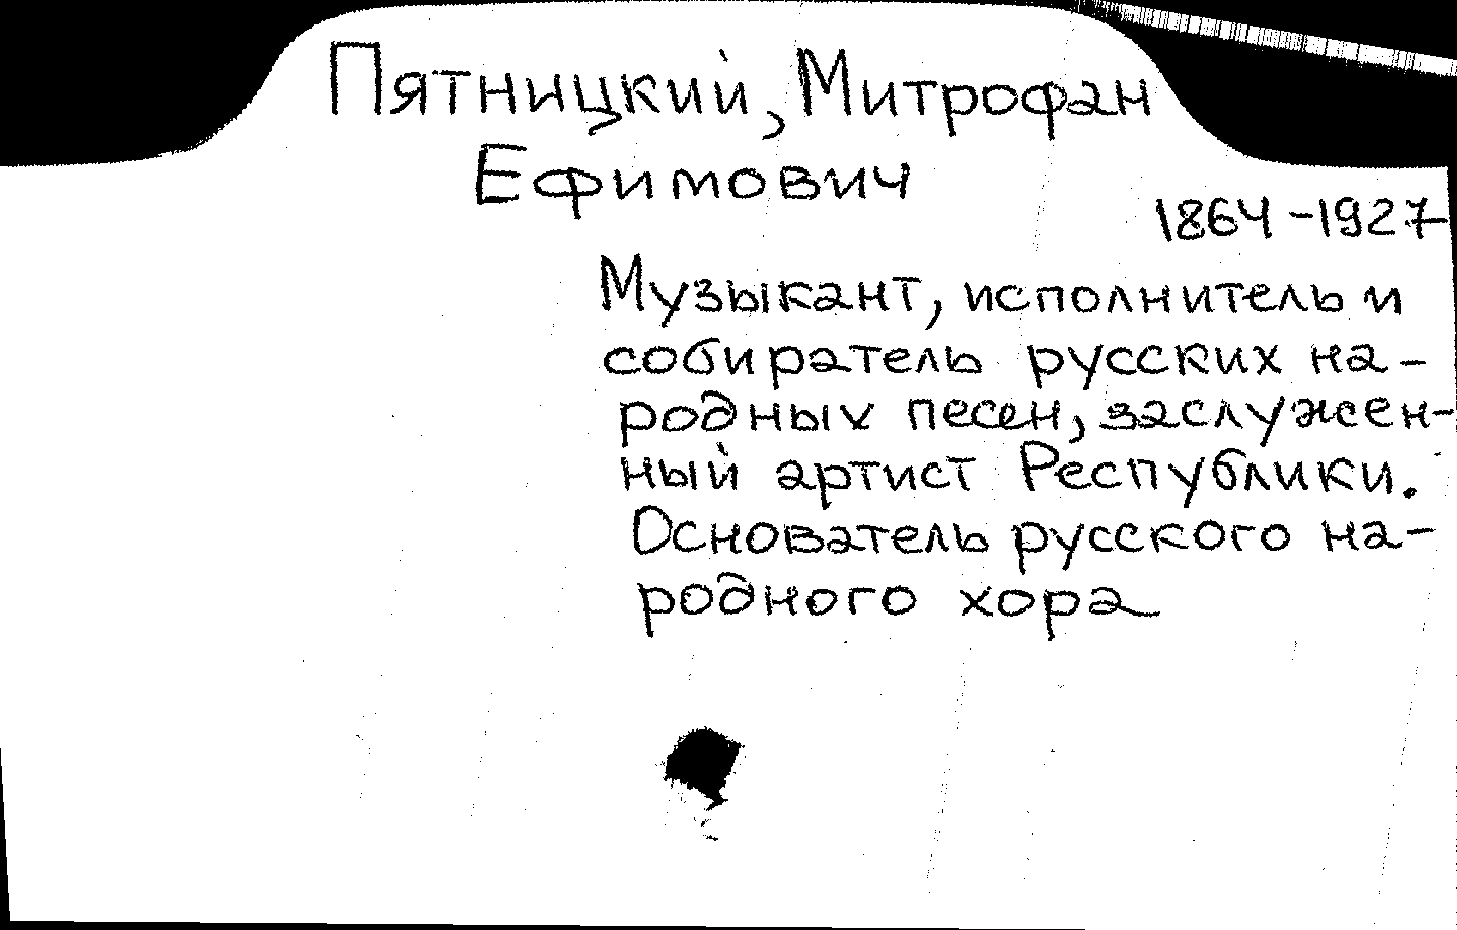 Пятницкий, Митрофан
Ефимович
1864-1927
Музыкант, исполнитель и
собиратель русских на-
родных песен, заслужен-
ный артист Республики.
Основатель русского на-
родного хора